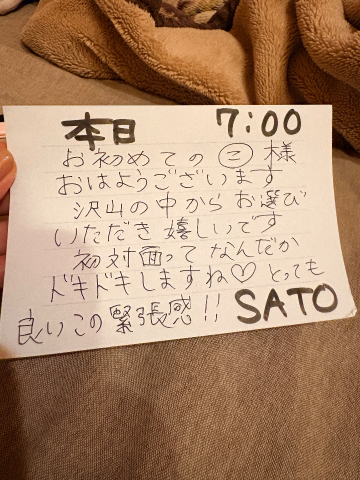 本日 7:00
お初めての ㊁ 様
おはようございます
沢山の中からお選び
いただき嬉しいです
初対面って なんだか
ドキドキしますね♡ とっても
良いこの緊張感!! SATO